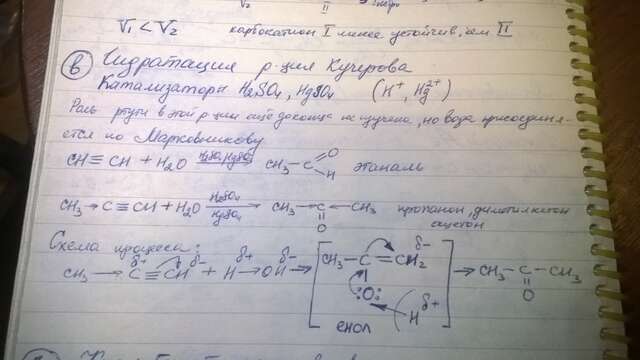 V₁ < V₂ карбокатион I менее устойчив, чем II
в) Гидратация р-ция Кучерова
Катализаторы H₂SO₄, HgSO₄ (H⁺, Hg²⁺)
Роль ртути в этой р-ции ещё до конца не изучена, но вода присоединя-
ется по Марковникову
CH≡CH + H₂O H₂SO₄, HgSO₄ → CH₃-C O H этаналь
CH₃→C≡CH + H₂O H₂SO₄ HgSO₄ → CH₃-C-CH₃ O пропанон, диметилкетон
ацетон
Схема процесса:
CH₃→C≡CH + H→OH → [CH₃-C=CH₂ :O: H] → CH₃-C-CH₃ O
δ+ δ- δ+ δ- δ- δ+
енол